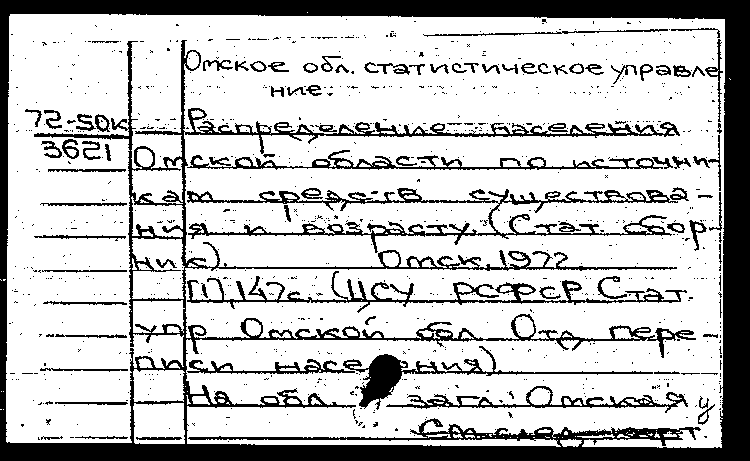 Омское обл. статистическое управле-
ние.
72-50к
3621
Распределение населения
Омской области по источни-
кам средств существова-
ния и возрасту. (Стат. сбор-
ник). Омск, 1972.
[1], 147с. (ЦСУ РСФСР. Стат.
упр Омской обл. Отд пере-
писи населения).
На обл. загл.: Омская
См след. карт.